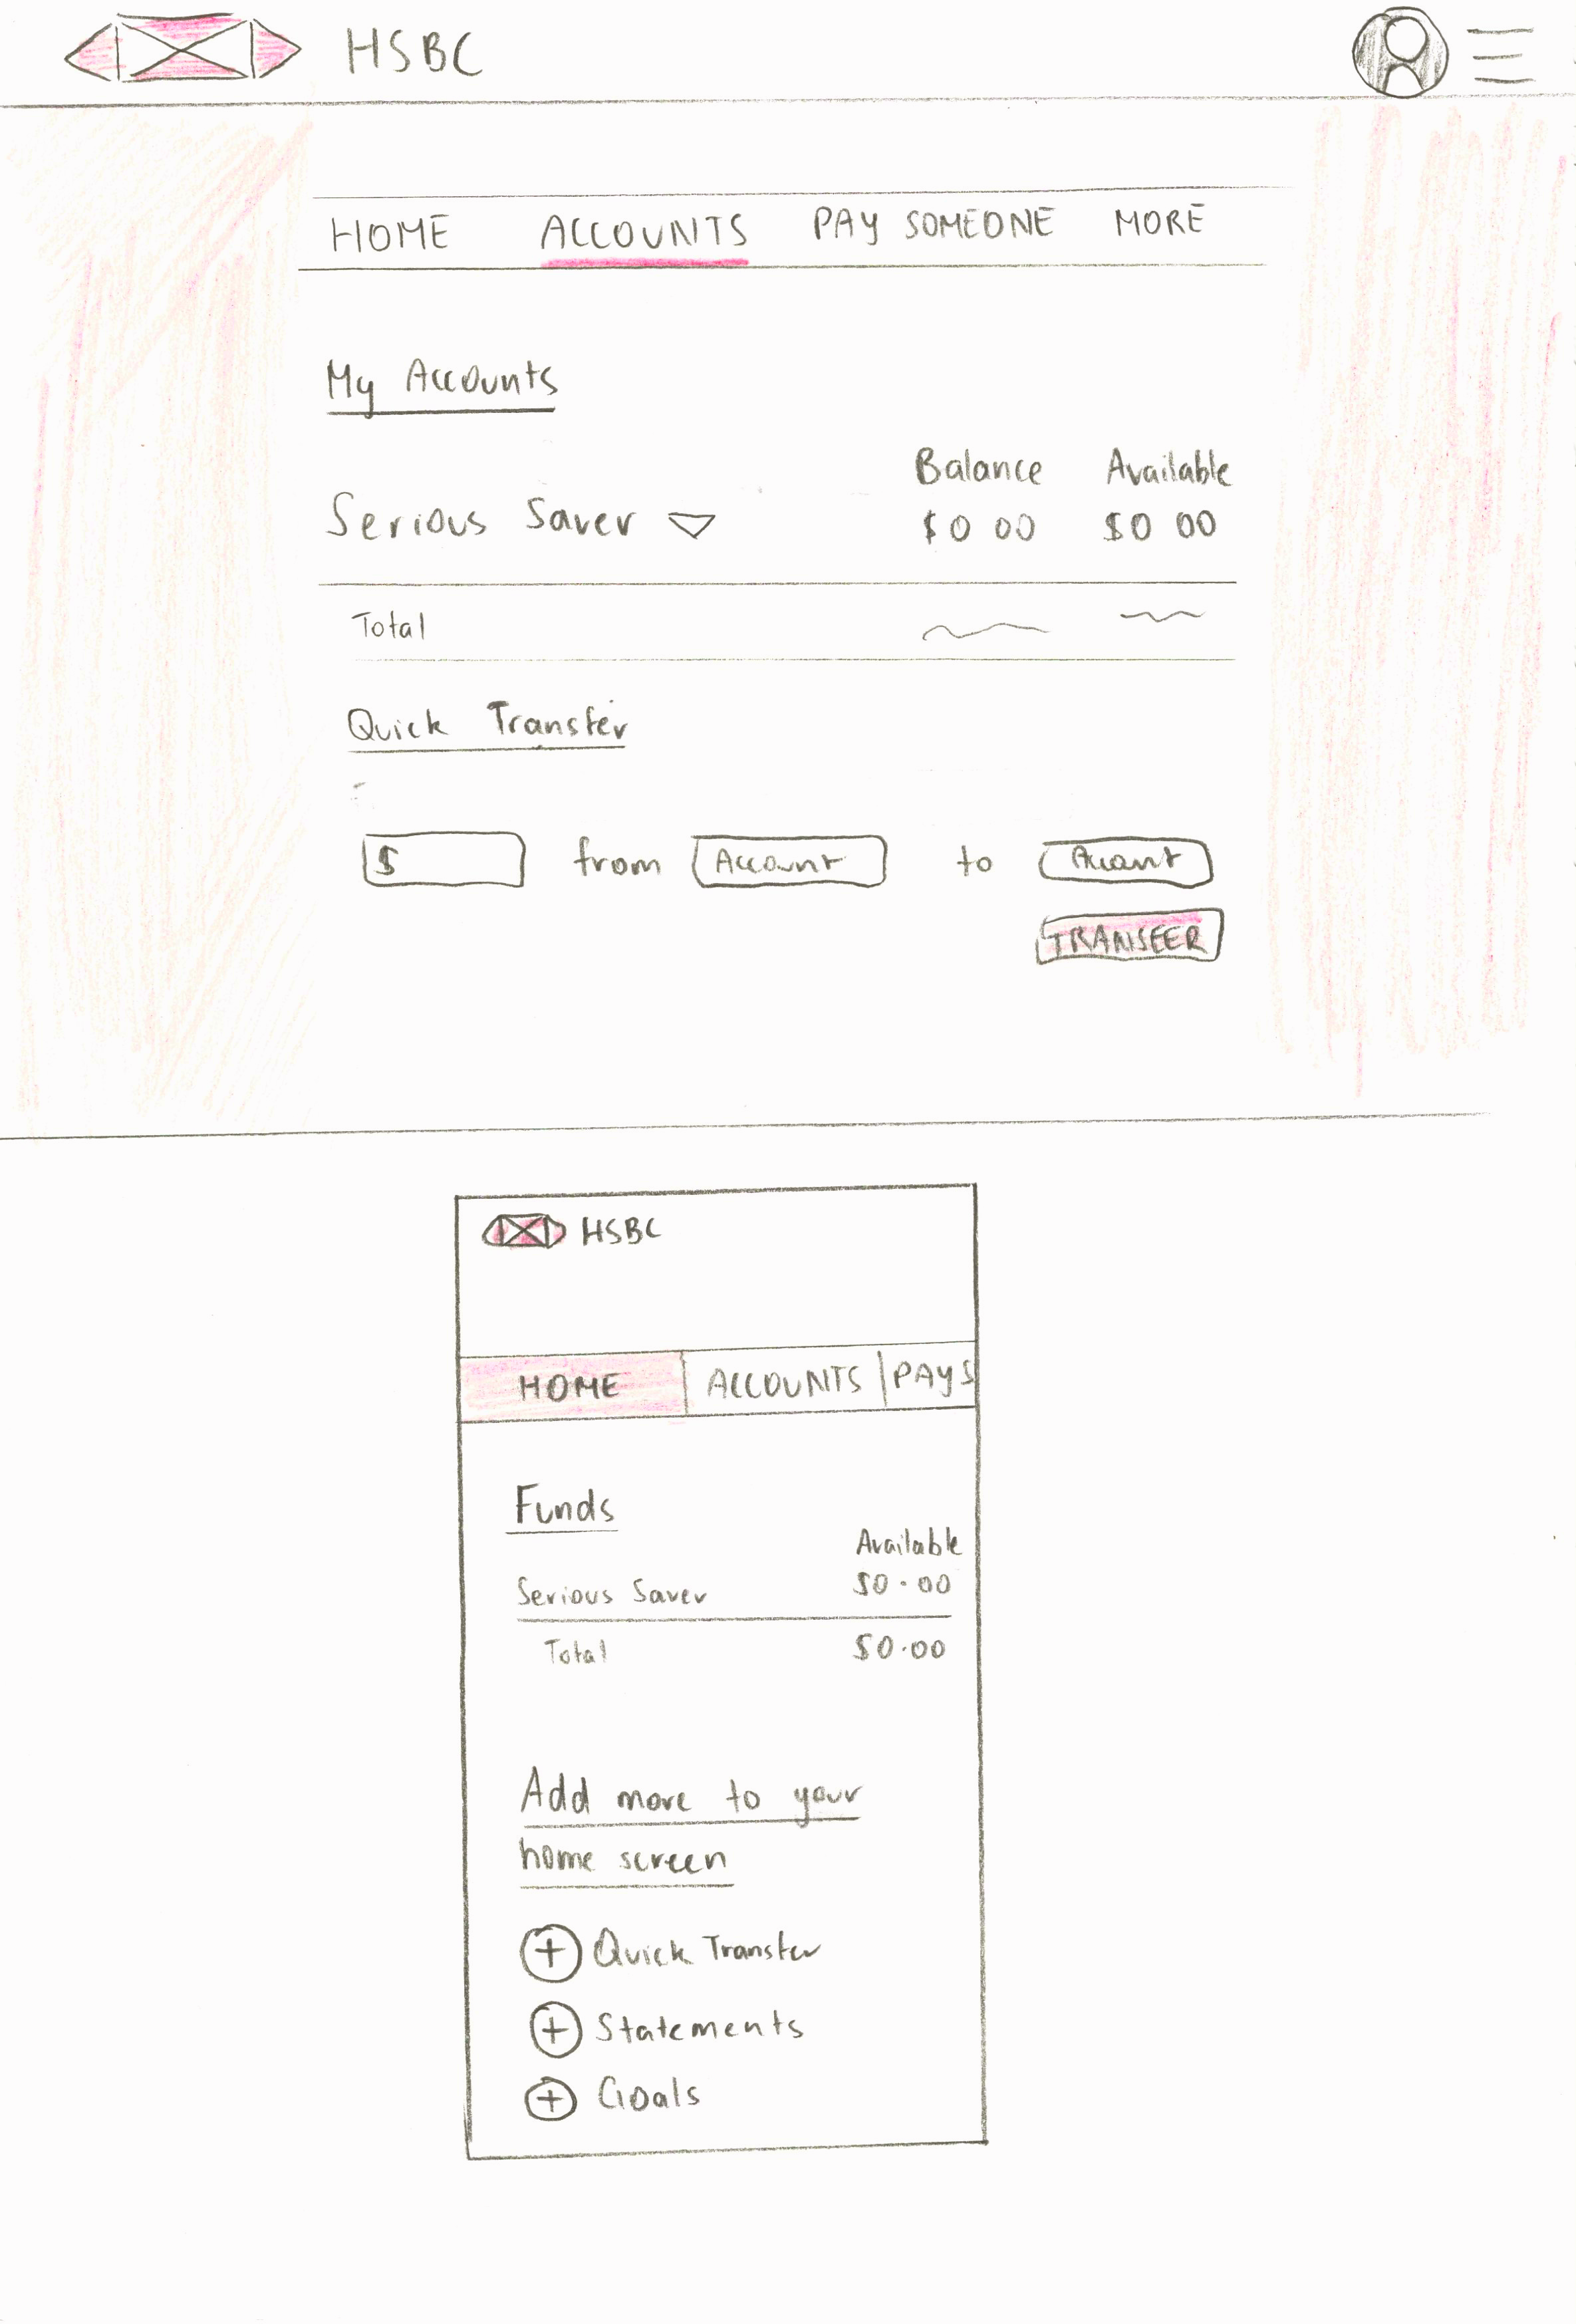 HSBC
HOME ACCOUNTS PAY SOMEONE MORE
My Accounts
Balance Available
Serious Saver $0 00 $0 00
Total
Quick Transfer
$ from Account to Account
TRANSFER
HSBC
HOME ACCOUNTS PAY S
Funds
Available
Serious Saver $0.00
Total $0.00
Add more to your
home screen
+ Quick Transfer
+ Statements
+ Goals